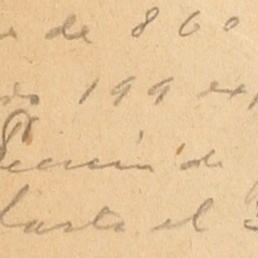 de 860
199 ex
Sección de
hasta el